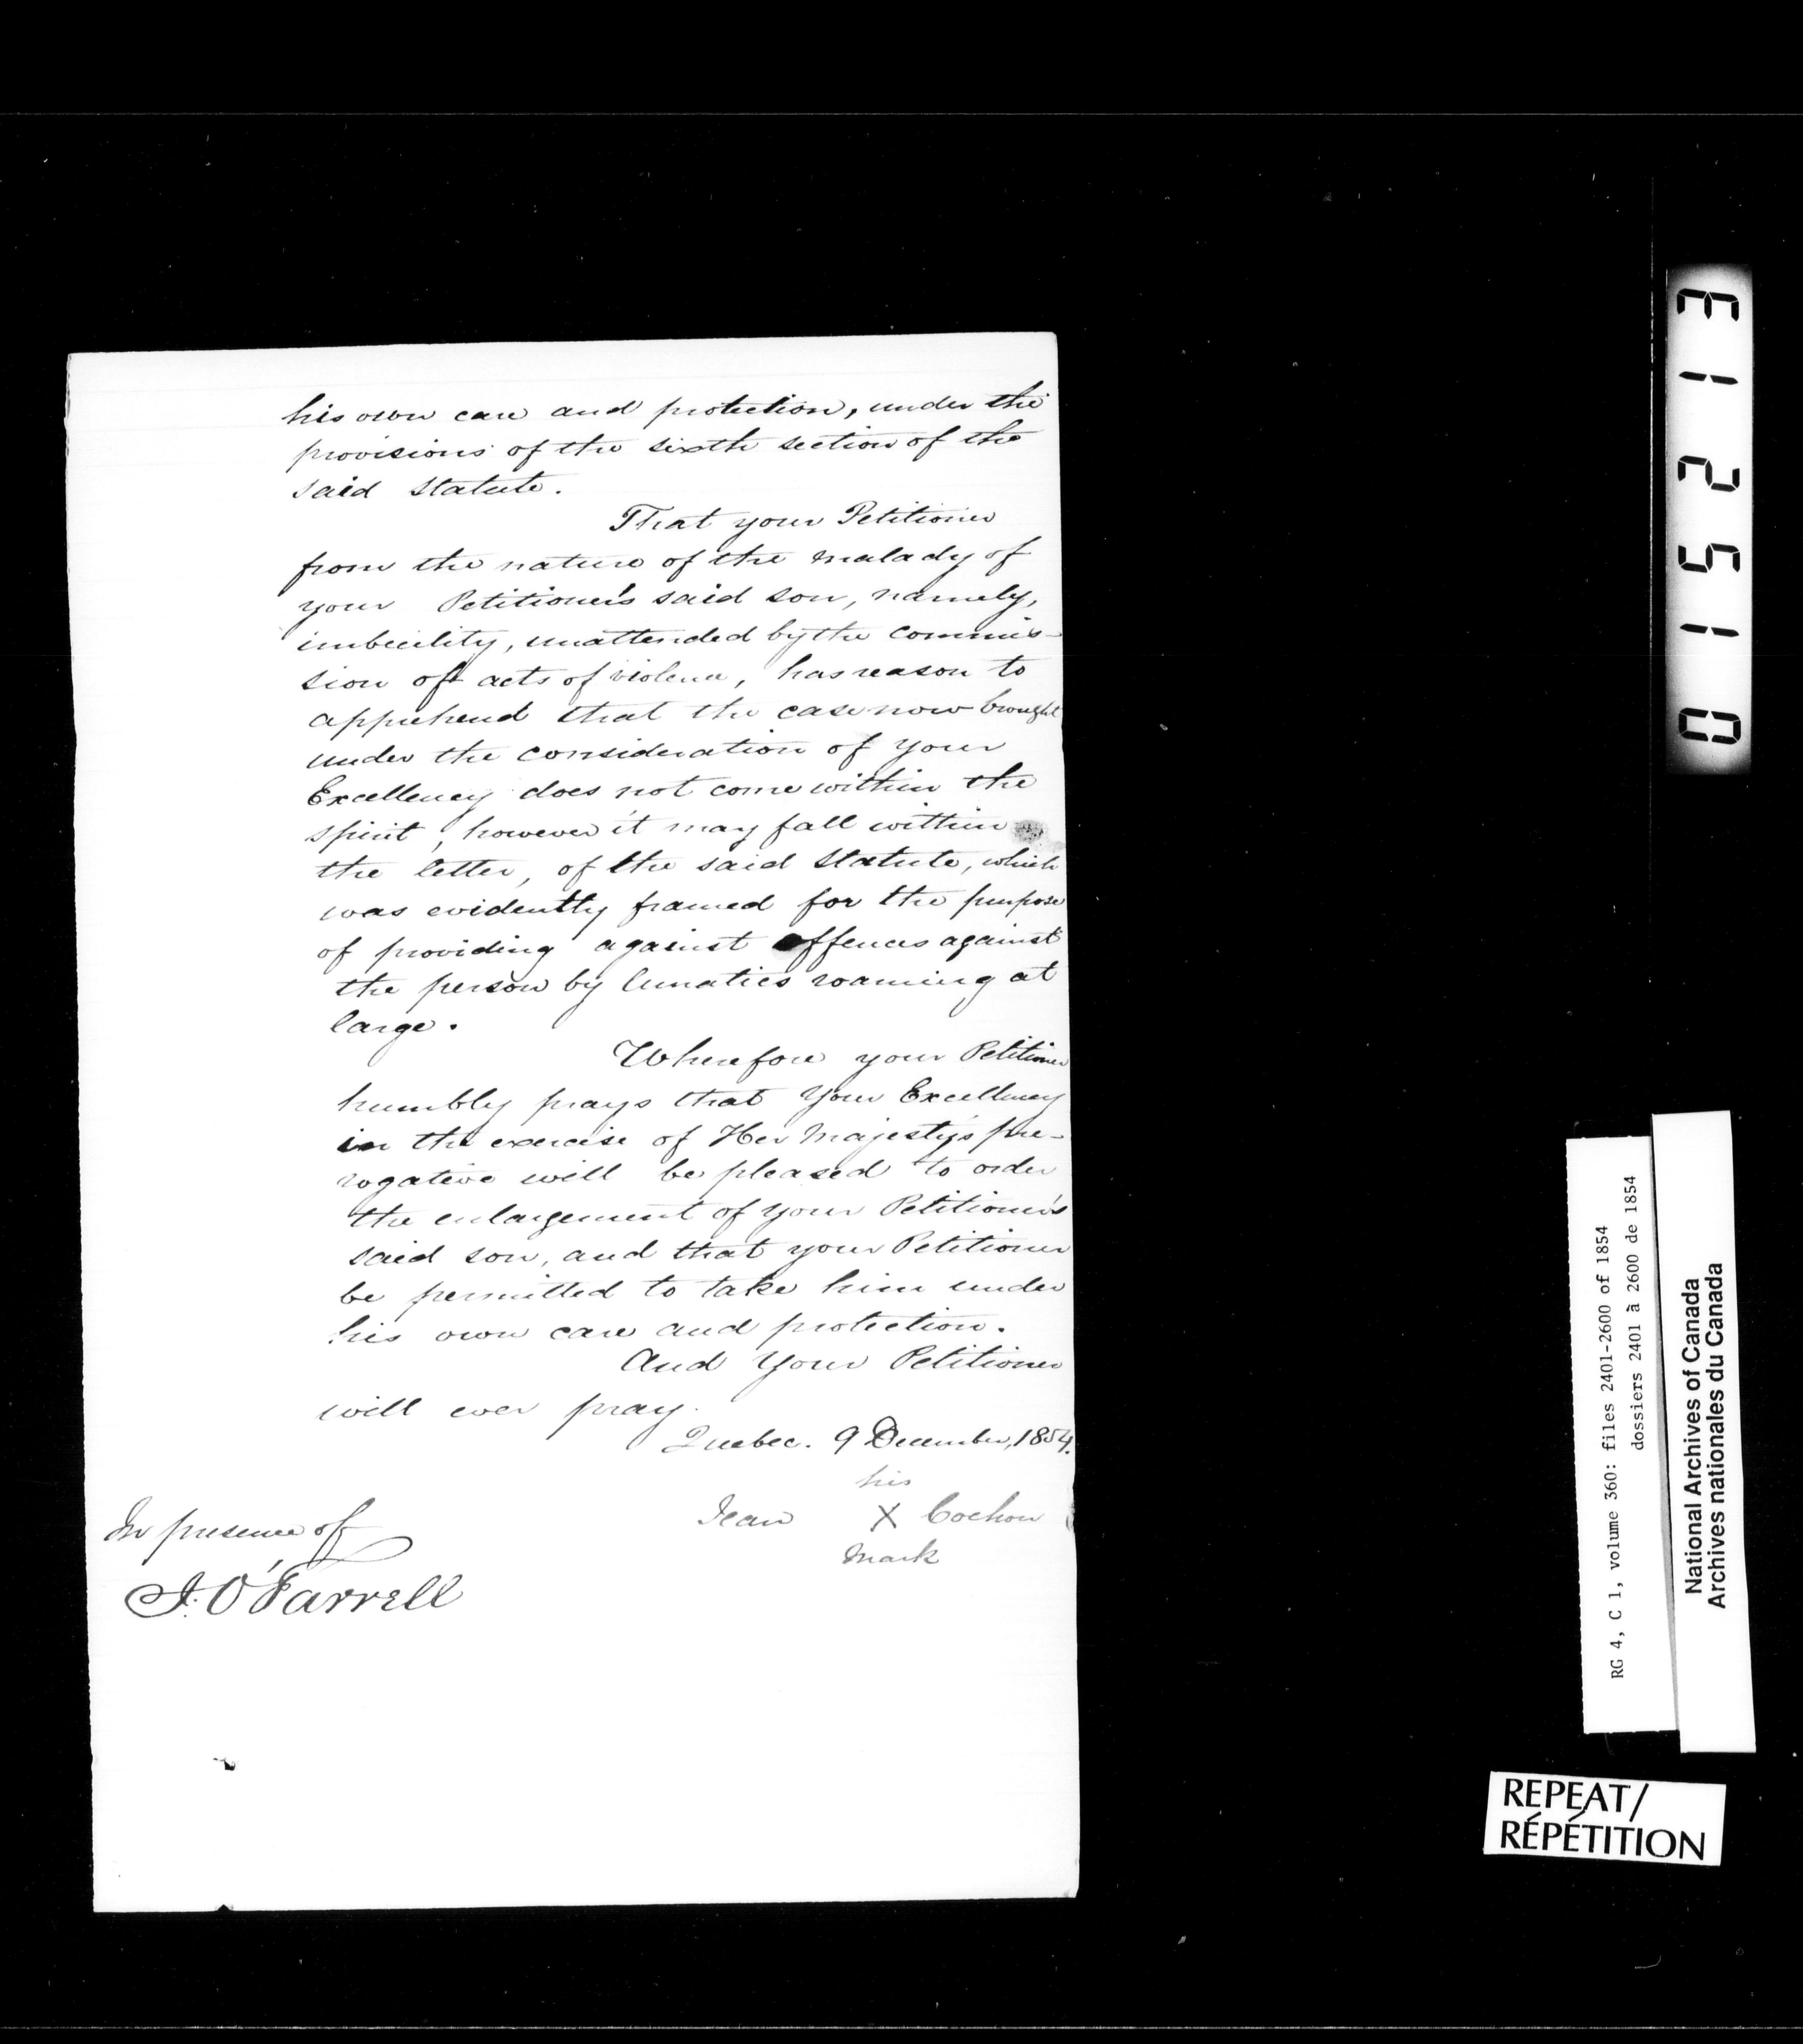 his own care and protection, under the
provisions of the sixth section of the
said statute.
That your Petitioner
from the nature of the malady of
your Petitioner's said son, namely,
imbecility, unattended by the commis-
sion of acts of violence, has reason to
apprehend that the case now brought
under the consideration of your
Excellency does not come within the
spirit, however it may fall within
the letter, of the said Statute, which
was evidently framed for the purpose
of providing against offences against
the person by lunatics roaming at
large.
Wherefore your Petitioner
humbly prays that Your Excellency
in the exercise of Her Majesty's pre-
rogative will be pleased to order
the enlargement of your Petitioner's
said son, and that your Petitioner
be permitted to take him under
his own care and protection.
And Your Petitioner
will ever pray.
Quebec. 9 December, 1854.
his
Jean X Cochon
mark
In presence of
J. O'Farrell
015213
RG 4, C 1, volume 360: files 2401-2600 of 1854
dossiers 2401 à 2600 de 1854
National Archives of Canada
Archives nationales du Canada
REPEAT/
RÉPÉTITION